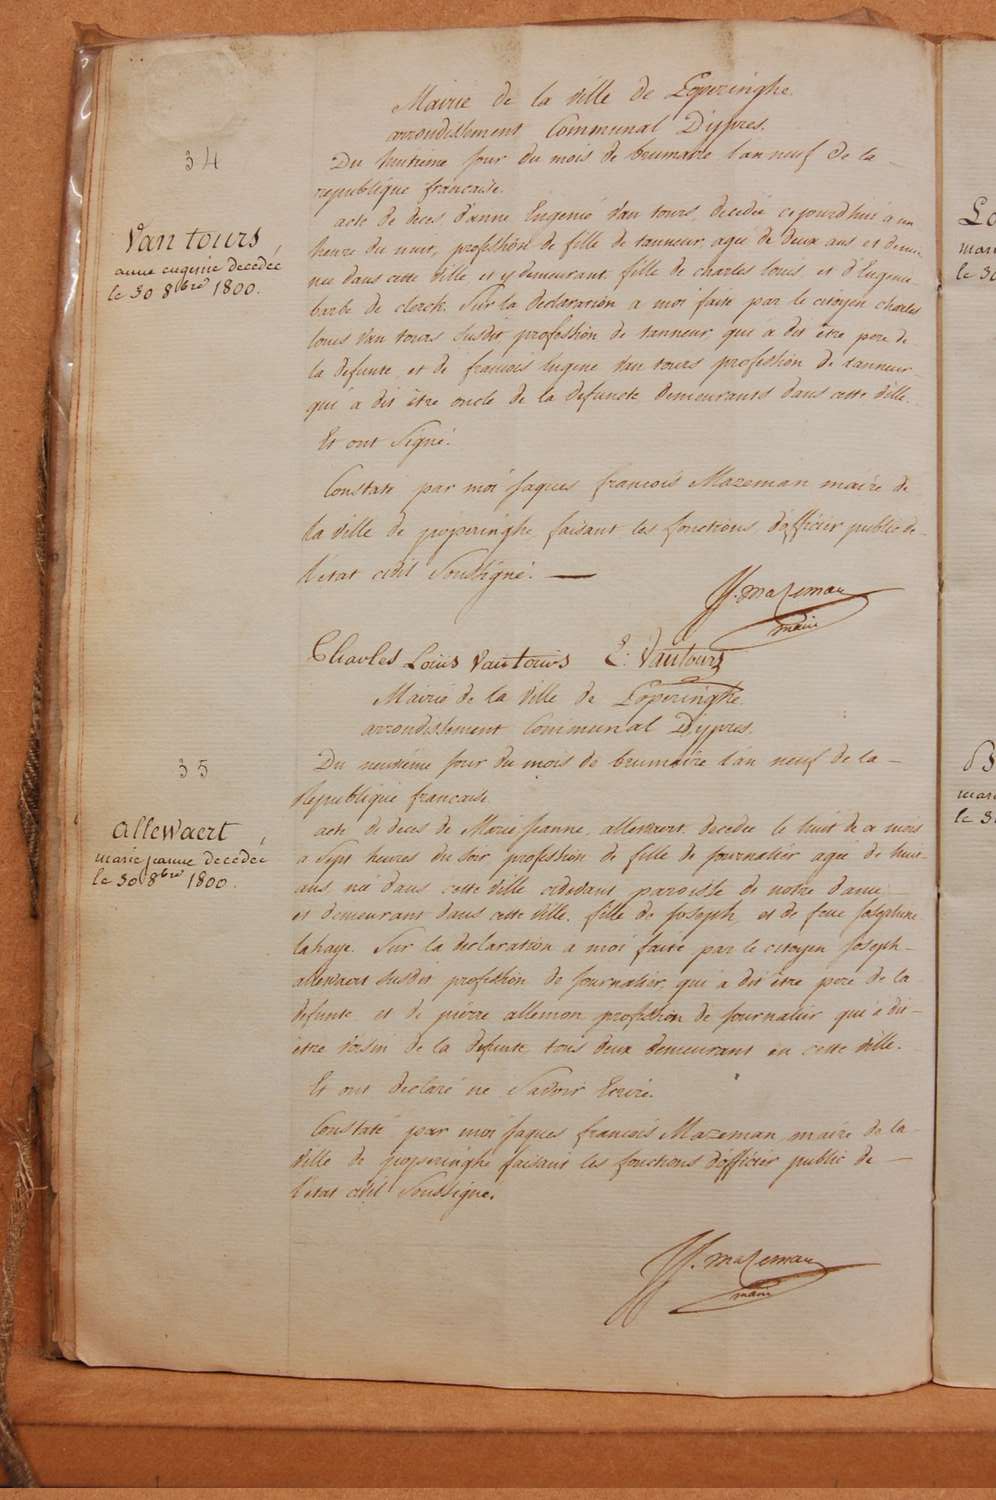 34
Van tours,
anne eugenie decedée
le 30 8bre 1800.
Mairie de la ville de Poperinghe.
arrondissement Communal D'ypres.
Du huitieme jour du mois de brumaire l'an neuf de la
republique francaise.
acte de deces d'anne Eugenie Van tours, decedée cejourd'hui a une
heure du nuit, profession de fille de tanneur, agée de deux ans et demi,
née dans cette ville et y demeurant, fille de charles louis et d'Eugenie
barbe de clerck. Sur la declaration a moi faite par le citoyen charles
louis Van tours susdit profession de tanneur, qui a dit être pere de
la defunte, et de francois Eugene Van tours profession de tanneur
qui a dit être oncle de la defuncte demeurants dans cette ville.
Et ont Signé.
Constaté par moi jaques francois Mazeman maire de
la ville de poperinghe, faisant les fonctions d'officier public de
l'état civil Soussigné.
JF. mazeman
maire
Charles Louis Vantours E: Vantours
Mairie de la ville de Poperinghe.
arrondissement Communal D'ypres.
35
Allewaert,
marie jeanne decedée
le 30 8bre 1800.
Du neuvième jour du mois de brumaire l'an neuf de la
Republique francaise.
acte de deces de Marie Jeanne allewaert, decedée le huit de ce mois
a Sept heures du soir profession de fille de journalier agée de huit
ans, née dans cette ville cidevant paroisse de notre dame
et demeurant dans cette ville, fille de Joseph, et de feue Josephine
lahaye. Sur la declaration a moi faite par le citoyen Joseph
allewaert susdit profession de journalier, qui a dit être pere de la
defunte, et de pierre allemon profession de journalier qui a dit
être Voisin de la defunte, tous deux demeurant en cette ville.
Et ont declaré ne Savoir Ecrire.
Constaté par moi jaques francois Mazeman maire de la
ville de poperinghe faisant les fonctions d'officier public de
l'état civil Soussigné.
JF. mazeman
maire
le 30
le 30